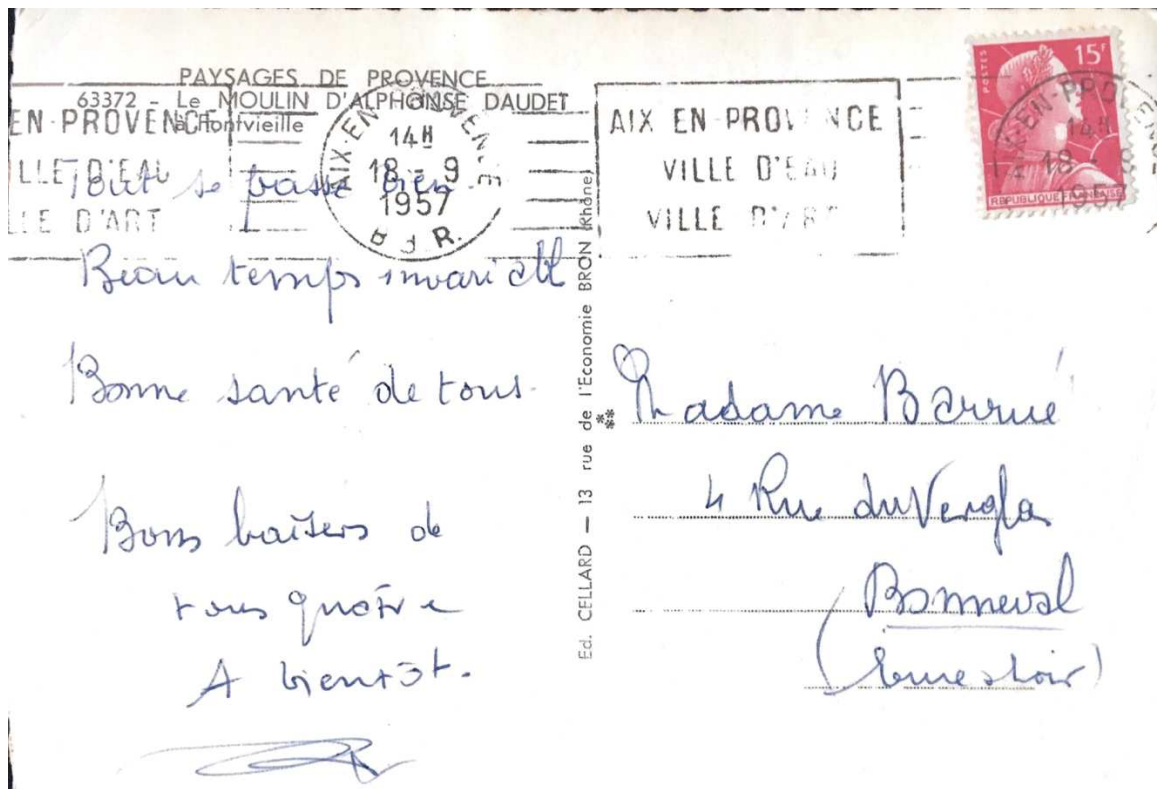 PAYSAGES DE PROVENCE
63372 - Le MOULIN D'ALPHONSE DAUDET
à Fontvieille
EN-PROVENCE
VILLE D'EAU
VILLE D'ART
AIX-EN-PROVENCE
14H
18-9
1957
B.D.R.
AIX EN PROVENCE
VILLE D'EAU
VILLE D'ART
POSTES
15F
REPUBLIQUE FRANÇAISE
AIX-EN-PROVENCE
14H
18-9
1957
Tout se passe bien.
Beau temps invariable
Bonne santé de tous.
Bons baisers de
tous quatre
A bientôt.
Ed. CELLARD — 13 rue de l'Economie BRON (Rhône)
Madame Barrué
4 Rue du
Bonneval
(Eure & Loir)